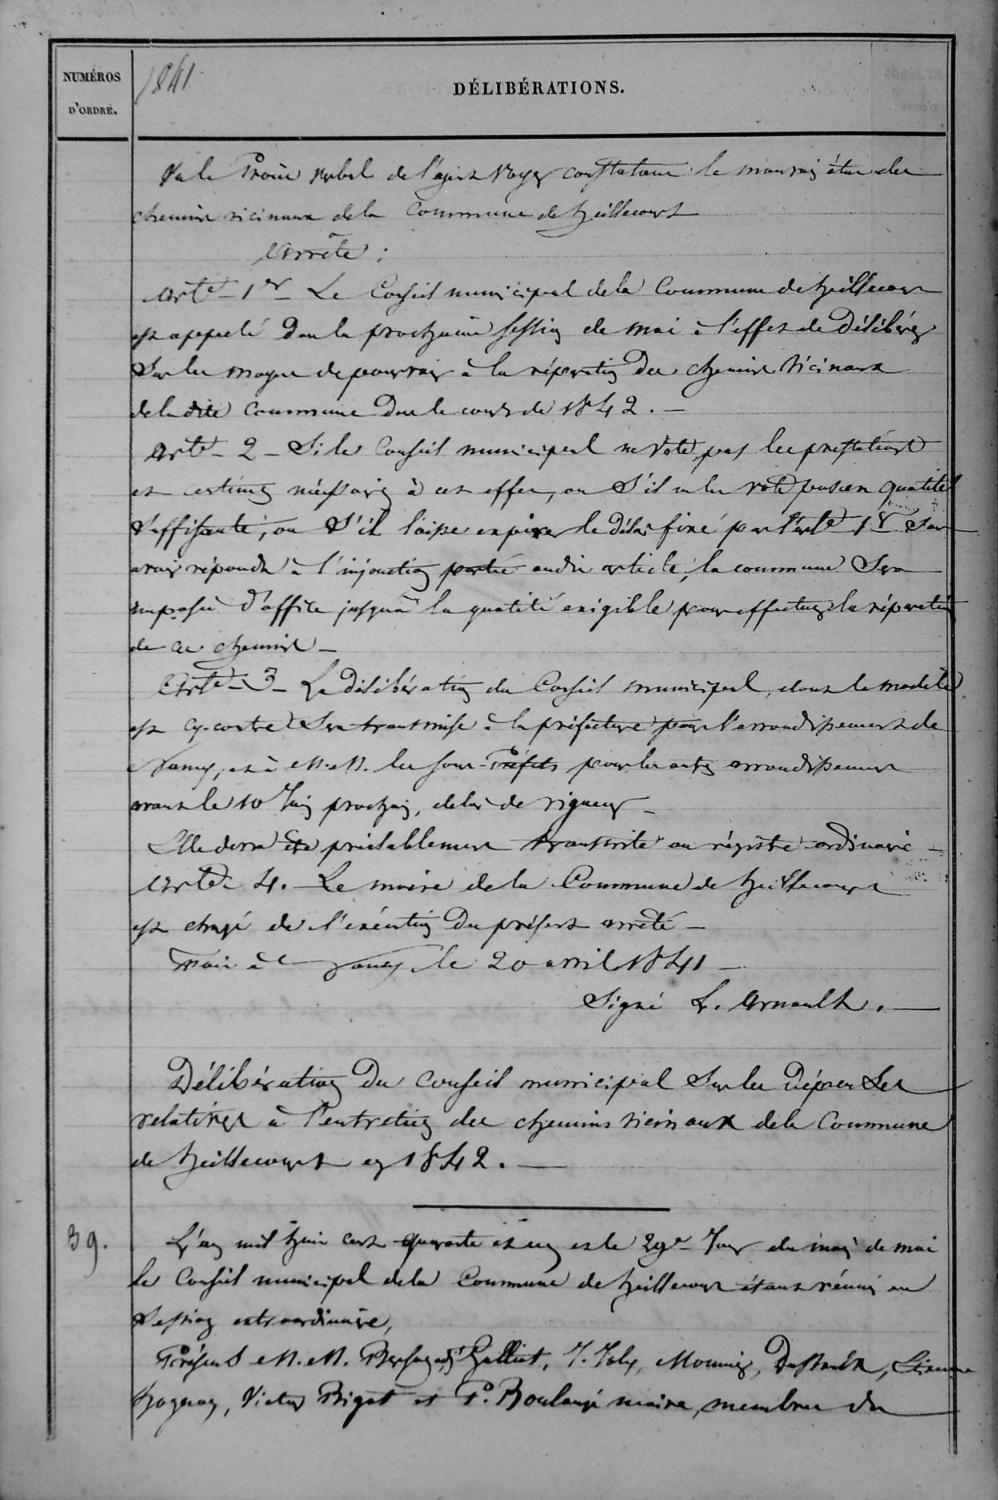 NUMÉROS
D'ORDRE.
1841
DÉLIBÉRATIONS.
Vu le Procès verbal de l'agent Voyer constatant le mauvais état des
chemins vicinaux de la Commune de heillecourt
Arrête :
Art.e 1er Le Conseil municipal de la Commune de heillecourt
est appelé dans la prochaine session de mai à l'effet de Délibérer
Sur les moyens de pourvoir à la réparation des chemins Vicinaux
de la dite Commune dans le cours de 1842. —
Art.e 2 — Si le Conseil municipal ne vote pas les prestations
et centimes nécessaires à cet effet, ou S'il ne les vote pas en quotité
Suffisante, ou S'il laisse expirer le délai fixé par l'art.e 1er Sans
avoir répondu à l'injonction portée audit article, la commune Sera
imposée d'office jusqu'à la quotité exigible pour effectuer la réparation
de ces chemins —
Art.e 3 — La délibération du Conseil municipal, dont le modèle
est cy-contre Sera transmise à la préfecture pour l'arrondissement de
Nancy, et à M.M. les Sous-Préfets pour les autres arrondissements
avant le 10 Juin prochain, délai de rigueur —
Elle devra être préalablement transcrite au régistre ordinaire —
Art.e 4. — Le maire de la Commune de heillecourt
est chargé de l'exécution du présent arrêté —
Fait à Nancy le 20 avril 1841 —
Signé L. Arnault. —
Délibération Du Conseil municipal Sur les Dépenses
relatives à l'entretien des chemins vicinaux de la Commune
de heillecourt en 1842. —
39.
L'an mil huit cent quarante et un et le 29e Jour du mois de mai
le Conseil municipal de la Commune de heillecourt étant réuni en
Session extraordinaire,
Présens M.M. Galliot, J. Joly, Mounier,
Victor Bigot et P. Boulangé maire, membres du